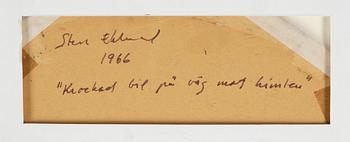 Sten Eklund
1966
"Krockad bil på väg mot himlen"